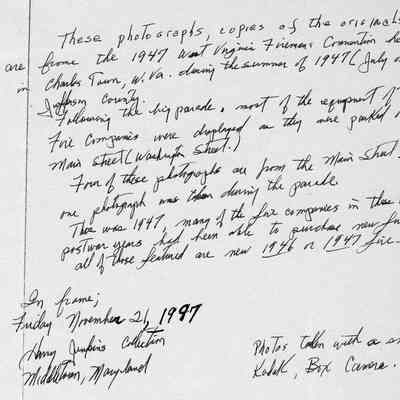 These photographs, copies of the originals
are frome the 1947 West Virginia Firemens Convention he
in Charles Town, W. Va. during the summer of 1947 (July o
Jefferson County.
Following the big parade, most of the equipment of
Fire Companies were displayed as they were parked
Main Street (Washington Street.)
Four of these photographs are from the Main Street
one photograph was taken during the parade.
This was 1947, many of the fire companies in these
postwar years had been able to purchase new fir
all of those featured are new 1946 or 1947 fire
In frame;
Friday November 21, 1997
Harry Jenkins Collection
Middletown, Maryland
Photos taken with a
Kodak, Box Camera.